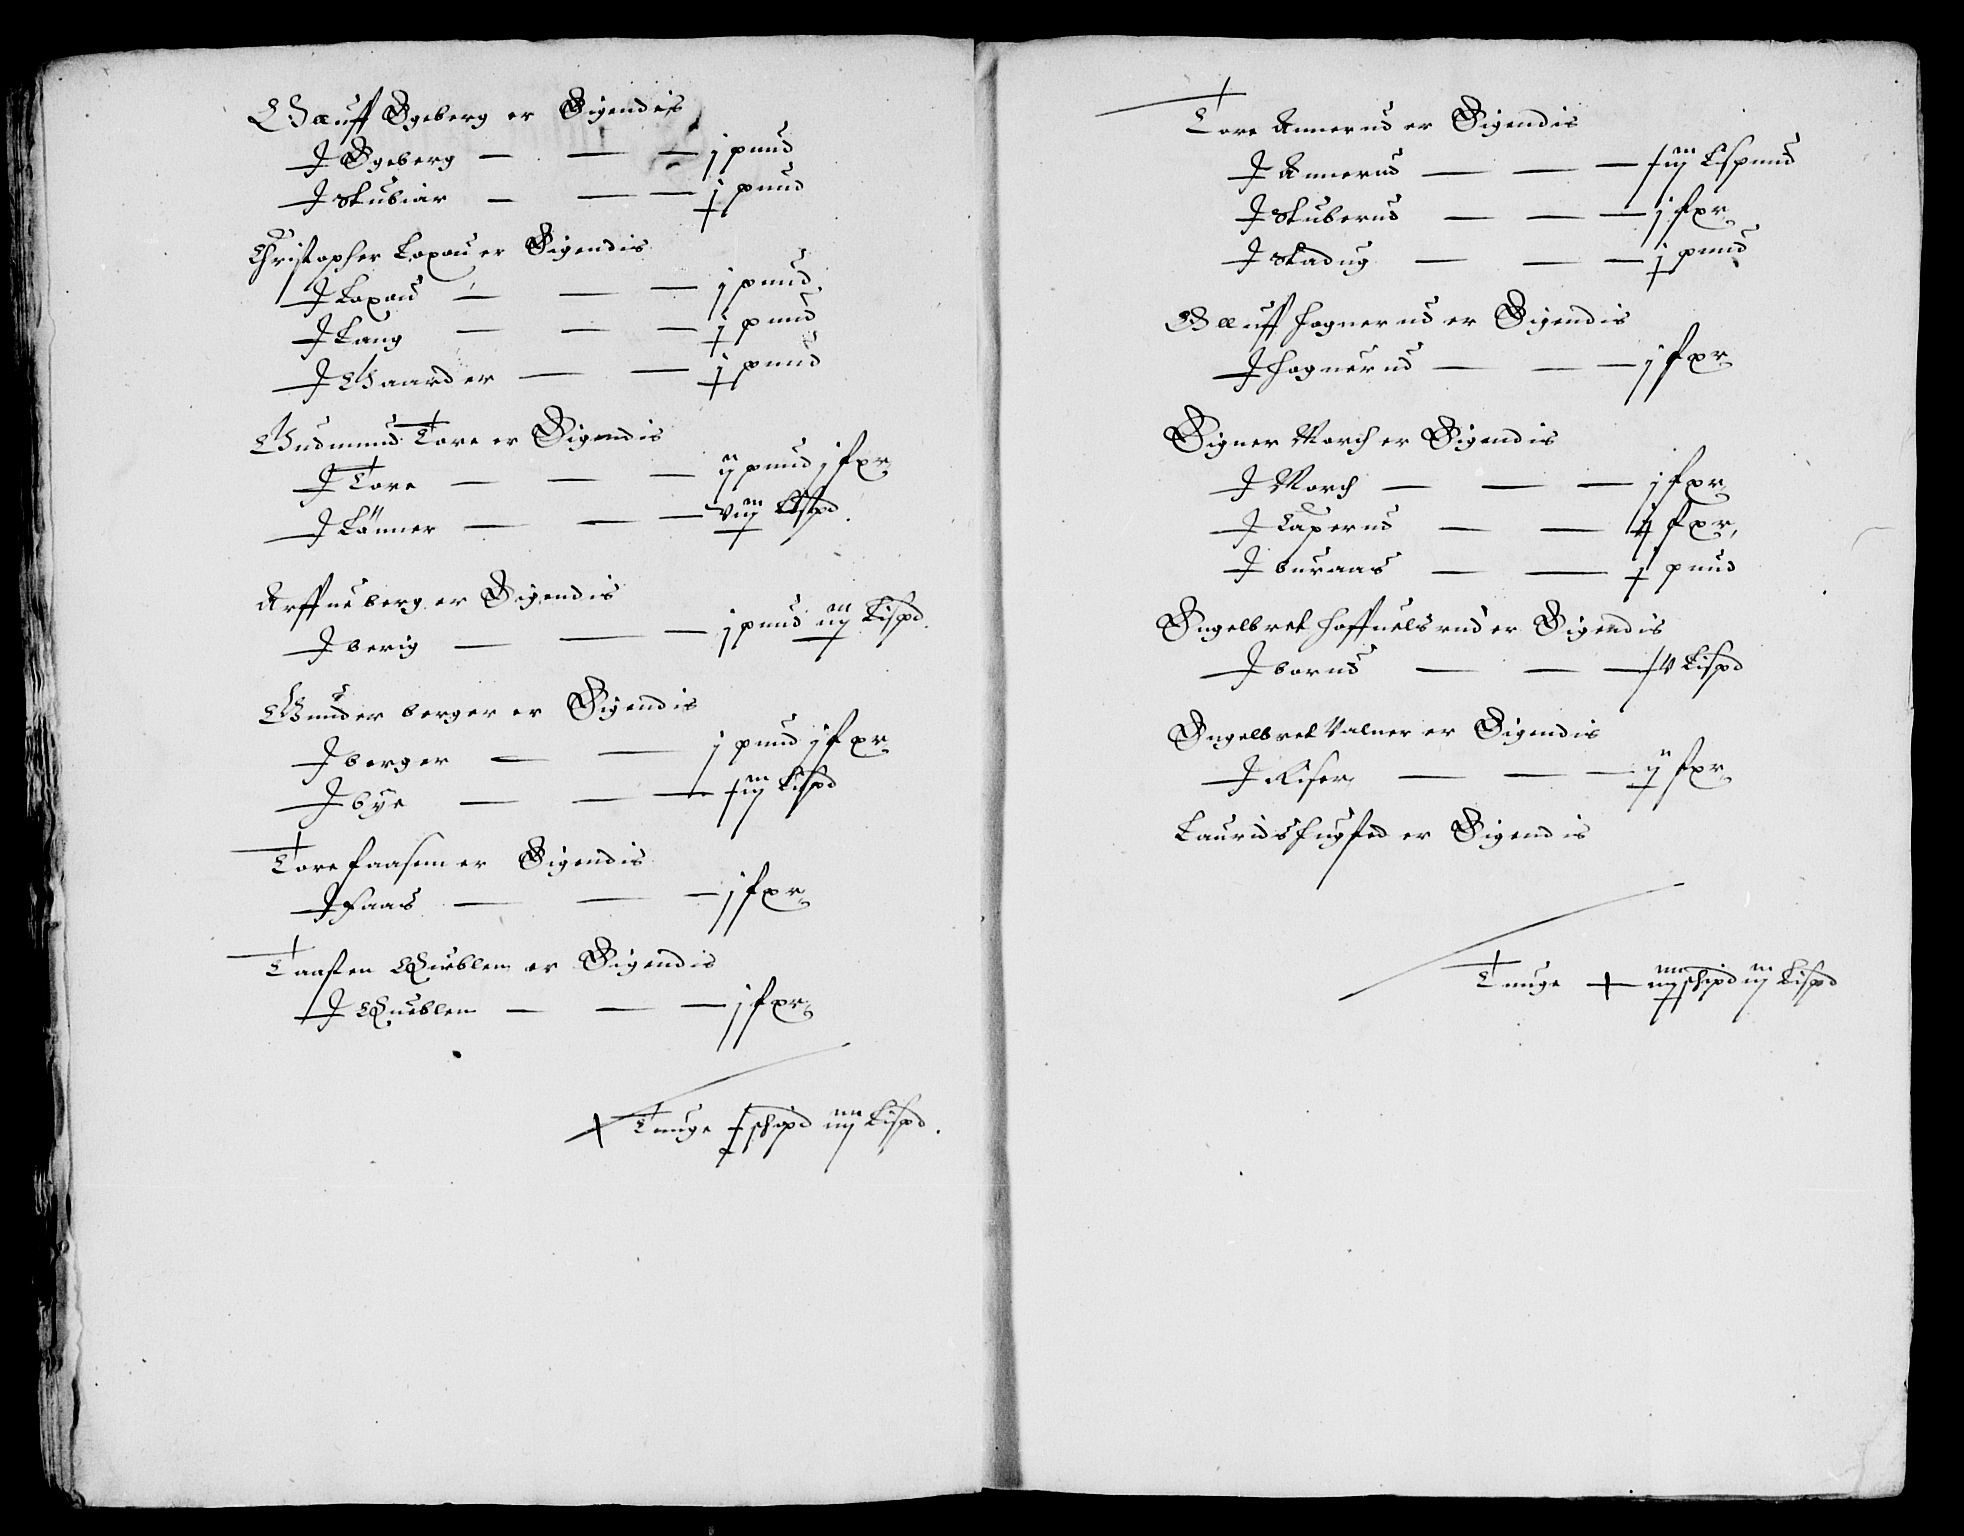 Oluff Egeberg er Eigendis
J Egeberg — — — j pund
J Skubiør — — — j pund
Christopher Loxou er Eigendis
J Loxou — — — j pund
J Lang — — — j pund
J Gaarder — — j pund
Gudmund Tore er Eigendis
J Tore — — — ij pund j fxr
J Länner — — — viij Lispd
Arffue berg er Eigendis
J berig — — — j pund iiij Lispd.
Gunder berger er Eigendis
J berger — — j pund j fxr
J bye — — — iij Lispd
Tore faasenn er Eigendis
J faas — — — j fxr
Taasten Queblen er Eigendis
J Queblen — — — j fxr
Tunge j schipd iiij Lispd.
Tore Annerud er Eigendis
J Annerud — — — iij Lispund
J Skuberud — — — j fxr
J Stadug — — — j pund
Oluff Hognerud er Eigendis
J Hognerud — — — j fxr
Eigner Morch er Eigendis
J Morch — — — j fxr
J Laperud — — ij fxr
J buraas — — j pund
Engelbret Hoffuelsrud er Eigendis
J borud — — — Lispd
Engelbret Valner er Eigendis
J Riser — — — ij fxr
Laurids Hugsted er Eigendis
Tunge — schipd iij Lispd